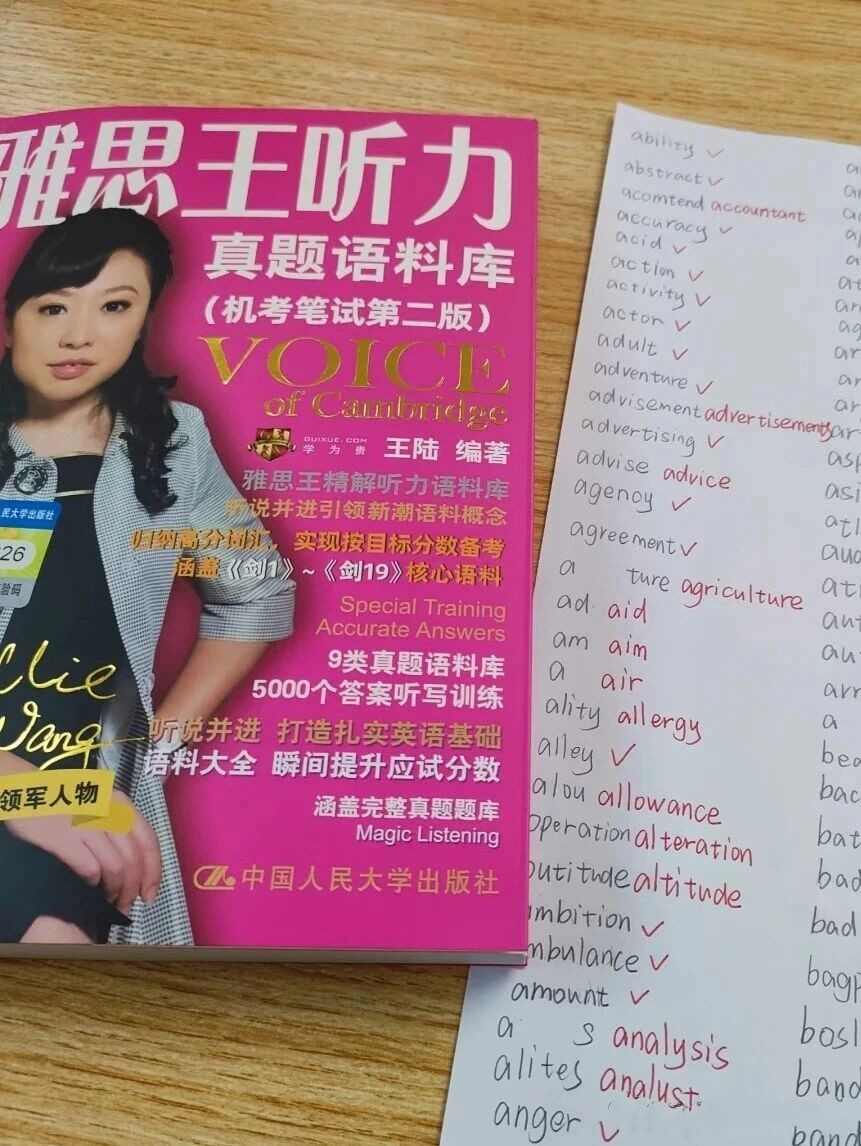 雅思王听力
真题语料库
(机考笔试第二版)
VOICE
of Cambridge
GUIXUE.COM
学为贵
王陆 编著
雅思王精解听力语料库
听说并进引领新潮语料概念
归纳高分词汇，实现按目标分数备考
涵盖《剑1》~《剑19》核心语料
Special Training
Accurate Answers
9类真题语料库
5000个答案听写训练
听说并进 打造扎实英语基础
语料大全 瞬间提升应试分数
涵盖完整真题题库
Magic Listening
中国人民大学出版社
民大学出版社
26
验码
llie
Wang
领军人物
ability ✓
abstract ✓
acomtend accountant
accuracy ✓
acid ✓
action ✓
activity ✓
actor ✓
adult ✓
adventure ✓
advisement advertisements
advertising ✓
advise advice
agency ✓
agreement ✓
a ture agriculture
ad aid
am aim
a air
ality allergy
alley ✓
alou allowance
operation alteration
outitude altitude
mbition ✓
mbulance ✓
amount ✓
a s analysis
alites analust
anger ✓
bea
bac
bat
bad
bad
bagp
bosl
band
band